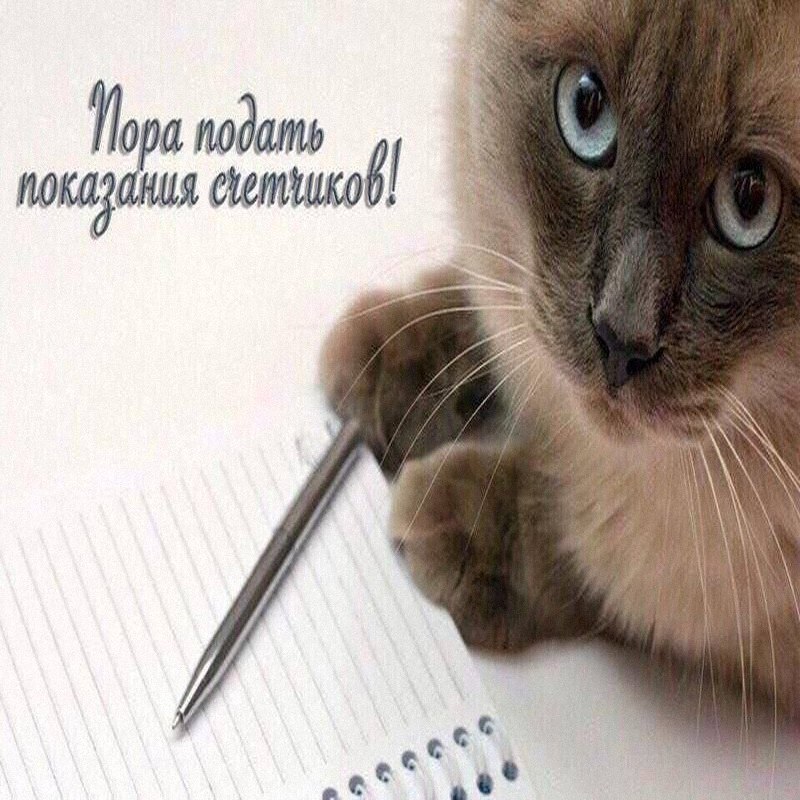 Пора подать
показания счетчиков!